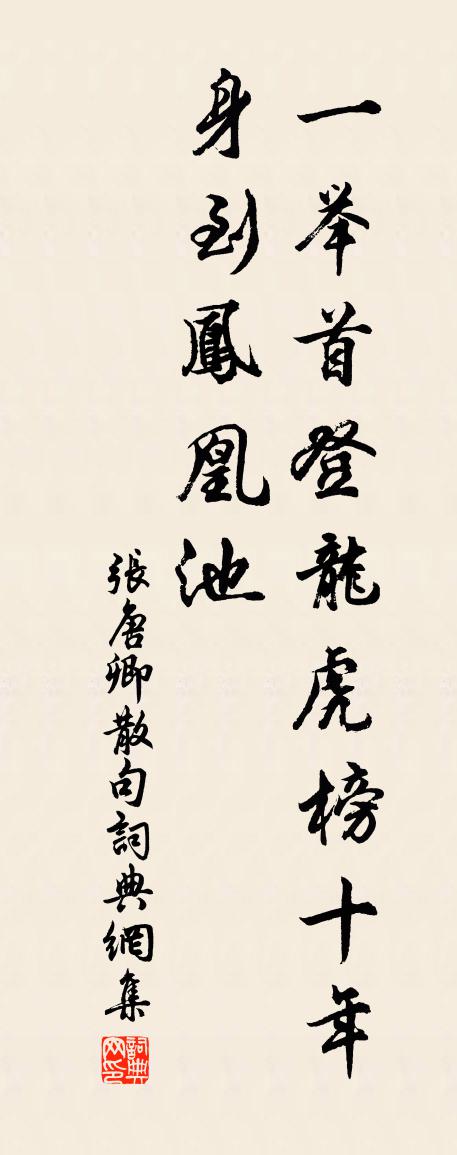 一举首登龍虎榜十年
身到鳳凰池
張唐卿散句詞典網集
詞典网印